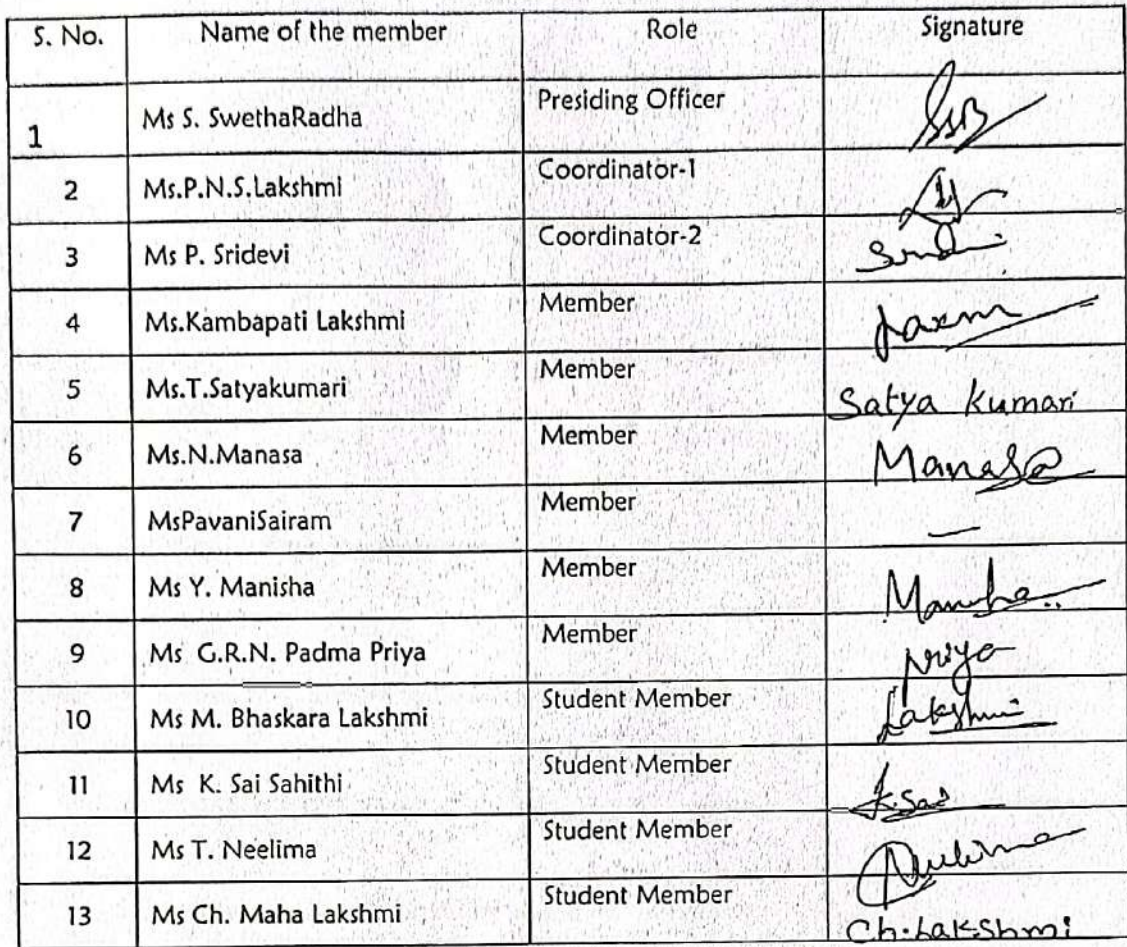 S. No. Name of the member Role Signature
1 Ms S. SwethaRadha Presiding Officer
2 Ms.P.N.S.Lakshmi Coordinator-1
3 Ms P. Sridevi Coordinator-2
4 Ms.Kambapati Lakshmi Member Laxmi
5 Ms.T.Satyakumari Member Satya Kumari
6 Ms.N.Manasa Member Manasa
7 MsPavaniSairam Member —
8 Ms Y. Manisha Member
9 Ms G.R.N. Padma Priya Member Priya
10 Ms M. Bhaskara Lakshmi Student Member Lakshmi
11 Ms K. Sai Sahithi Student Member K.Sai
12 Ms T. Neelima Student Member
13 Ms Ch. Maha Lakshmi Student Member Ch.Lakshmi